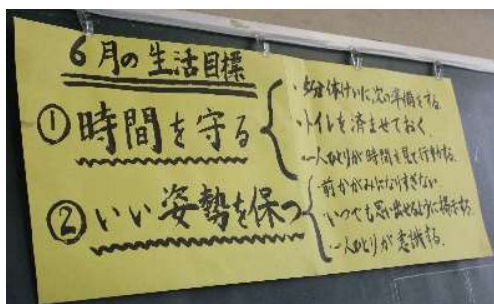 6月の生活目標
①時間を守る
・5分休けいに次の準備をする。
・トイレを済ませておく。
・一人ひとりが時間を見て行動する。
②いい姿勢を保つ
・前かがみになりすぎない。
・いつでも思い出せるように掲示する。
・一人ひとりが意識する。